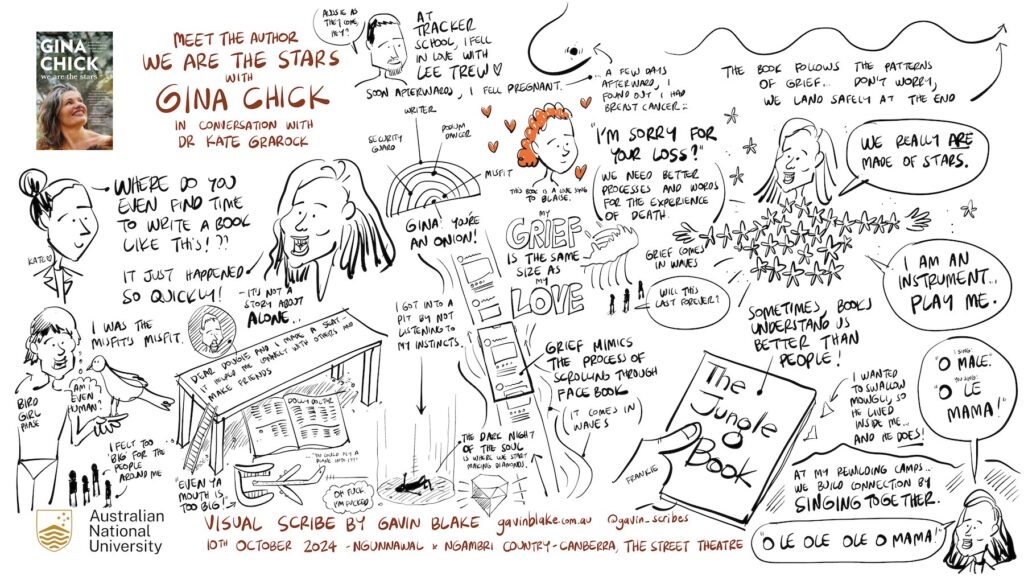 GINA
CHICK
we are the stars
MEET THE AUTHOR
WE ARE THE STARS
WITH
GINA CHICK
IN CONVERSATION WITH
DR KATE GRAROCK
AUSSIE AS
THEY COME,
HEY?
AT
TRACKER
SCHOOL, I FELL
IN LOVE WITH
LEE TREW
SOON AFTERWARD, I FELL PREGNANT.
... A FEW DAYS
AFTERWARD, I
FOUND OUT I HAD
BREAST CANCER...
THE BOOK FOLLOWS THE PATTERNS
OF GRIEF... DON'T WORRY,
WE LAND SAFELY AT THE END
WRITER
SECURITY
GUARD
PODIUM
DANCER
MISFIT
GINA! YOU'RE
AN ONION!
THIS BOOK IS A LOVE SONG
TO BLAISE.
"I'M SORRY FOR
YOUR LOSS?"
WE NEED BETTER
PROCESSES AND WORDS
FOR THE EXPERIENCE
OF DEATH.
WE REALLY ARE
MADE OF STARS.
KATE
WHERE DO YOU
EVEN FIND TIME
TO WRITE A BOOK
LIKE THIS! ??
IT JUST HAPPENED
SO QUICKLY!
- IT'S NOT A
STORY ABOUT
ALONE...
MY
GRIEF
IS THE SAME
SIZE AS
MY
LOVE
GRIEF COMES
IN WAVES
WILL THIS
LAST FOREVER?
I AM AN
INSTRUMENT...
PLAY ME.
I WAS THE
MISFIT'S MISFIT.
BIRD
GIRL
PHASE
AM I
EVEN
HUMAN?
I FELT TOO
BIG FOR THE
PEOPLE
AROUND ME
DEAR DOUGIE AND I MAKE A SEAT-
IT HELPED ME CONNECT WITH OTHERS AND
MAKE FRIENDS
DOLLY DOCTOR
"EVEN YA
MOUTH IS
TOO BIG!"
"YOU COULD FLY A
PLANE INTO IT!"
I GOT INTO A
PIT BY NOT
LISTENING TO
MY INSTINCTS.
OH FUCK
I'M FUCKED
THE DARK NIGHT
OF THE SOUL
IS WHERE WE START
MAKING DIAMONDS.
GRIEF MIMICS
THE PROCESS OF
SCROLLING THROUGH
FACEBOOK
(IT COMES IN
WAVES)
SOMETIMES, BOOKS
UNDERSTAND US
BETTER THAN
PEOPLE!
The
Jungle
Book
FRANKIE
I WANTED
TO SWALLOW
MOWGLI, SO
HE LIVED
INSIDE ME...
AND HE DOES!
I SING:
"O MALE."
YOU SING:
"O LE
MAMA!"
AT MY REWILDING CAMPS...
WE BUILD CONNECTION BY
SINGING TOGETHER.
"O LE OLE OLE O MAMA!"
Australian
National
University
VISUAL SCRIBE BY GAVIN BLAKE gavinblake.com.au @gavin_scribes
10TH OCTOBER 2024 - NGUNNAWAL × NGAMBRI COUNTRY - CANBERRA, THE STREET THEATRE